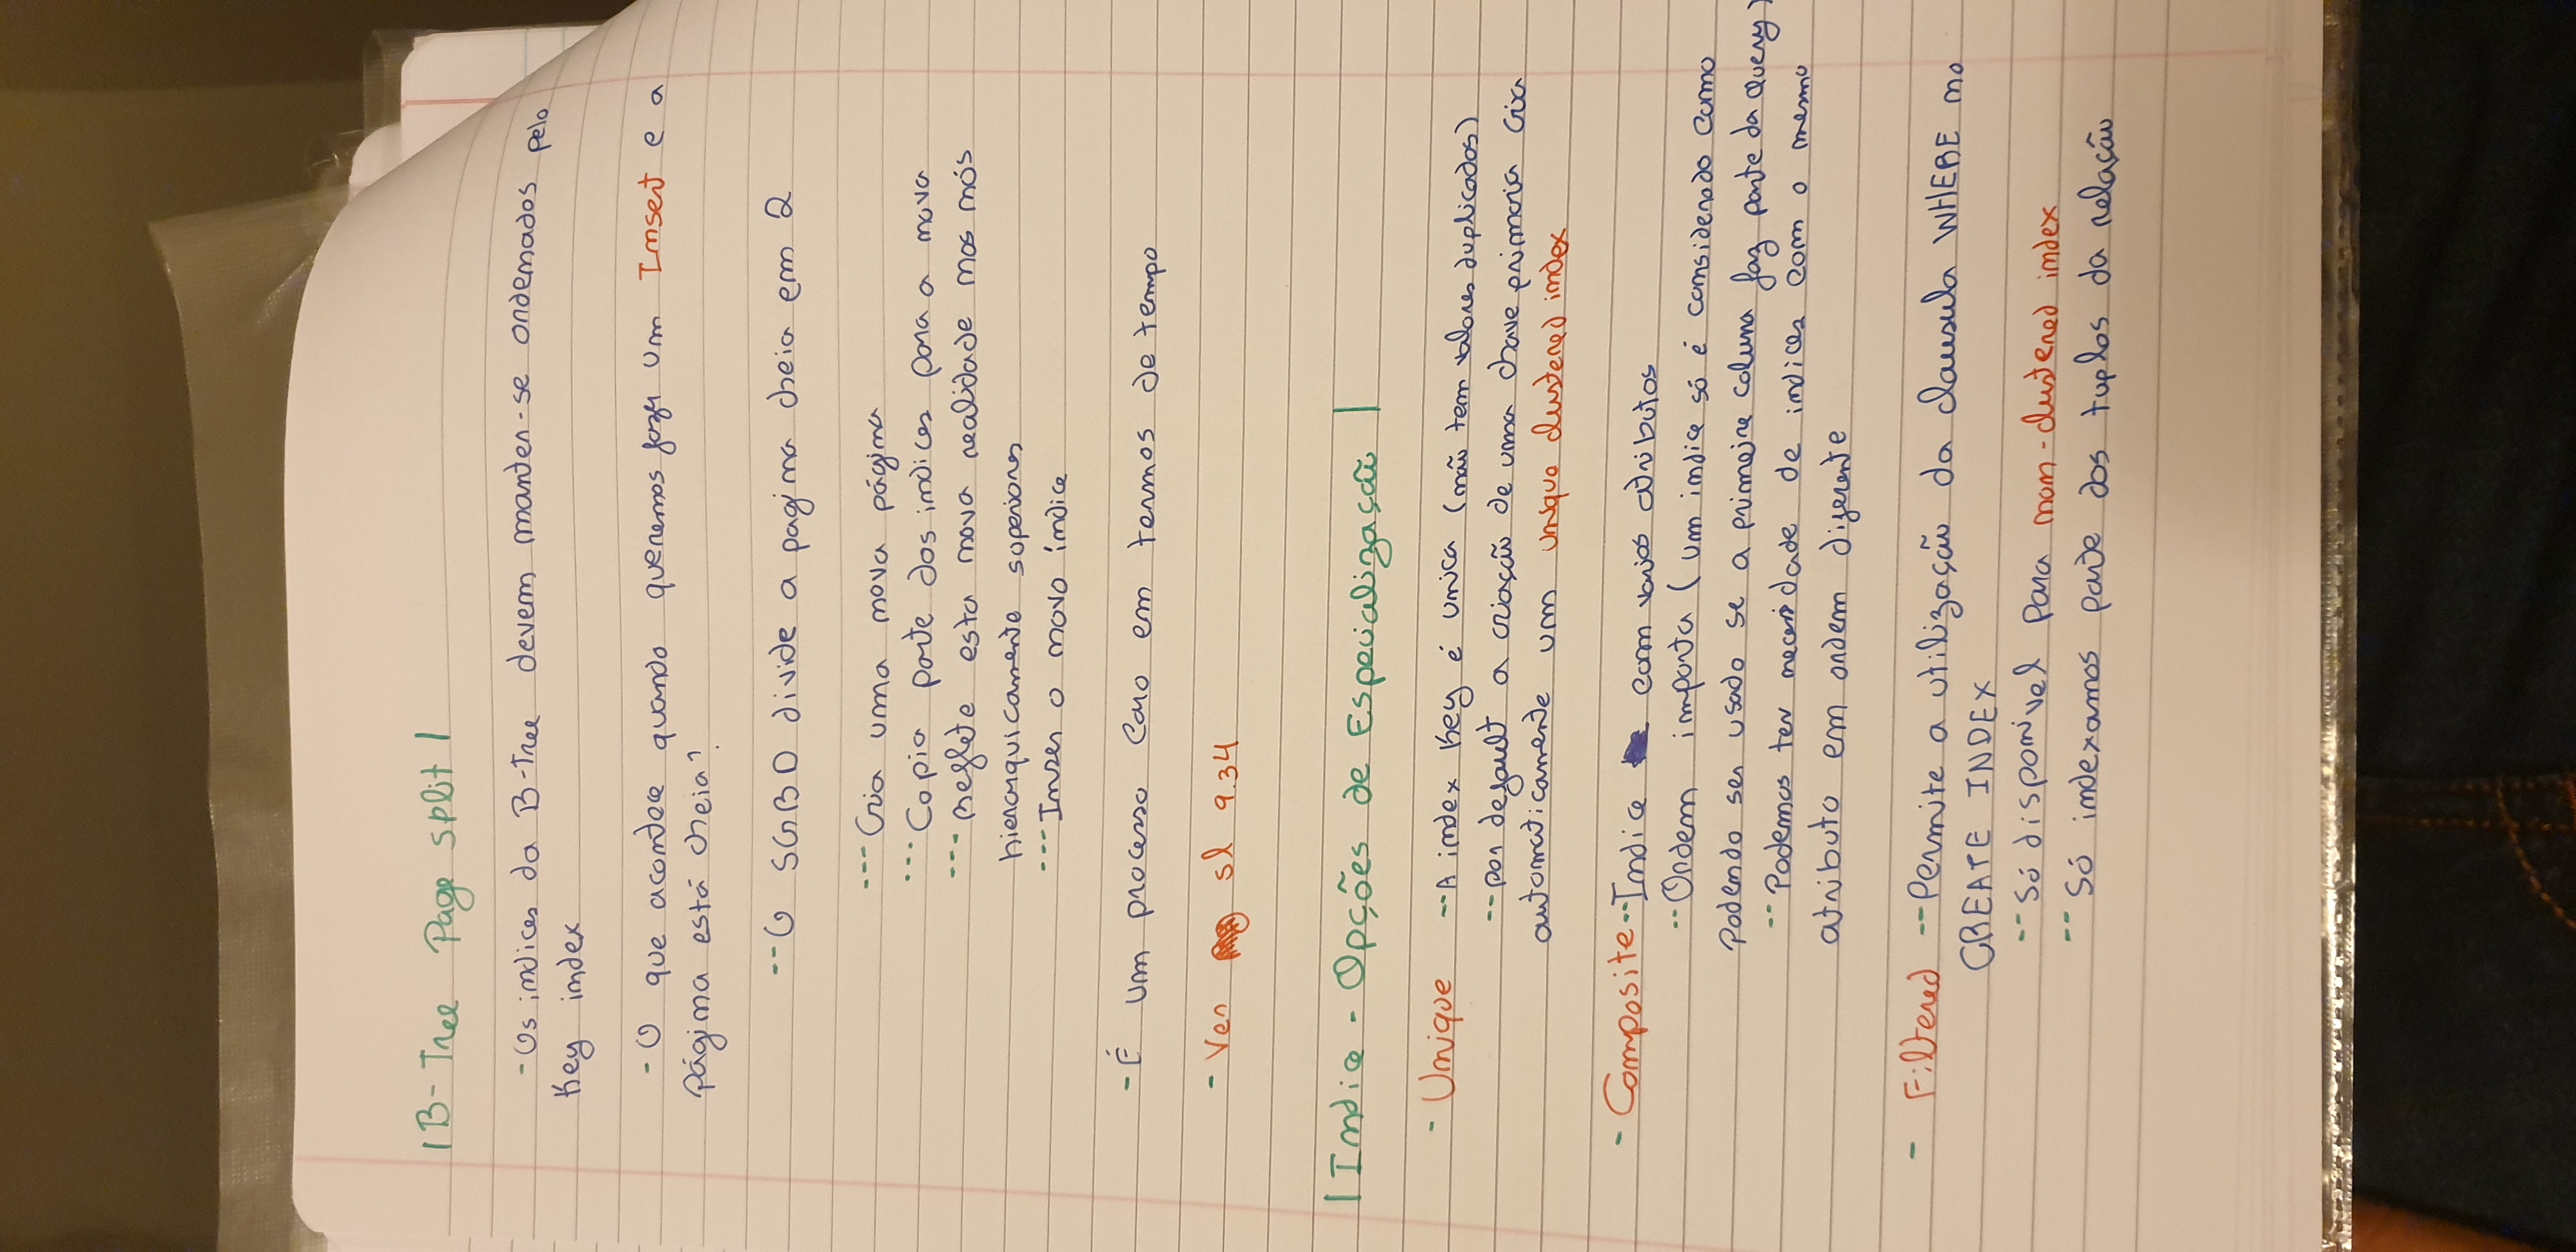 | B-Tree Page split |
- Os indices da B-Tree devem manter-se ordenados pelo
Key index
- O que acontece quando queremos fazer um Insert e a
Página está cheia?
-- O SGBD divide a pagina cheia em 2
--- Cria uma nova página
--- Copia parte dos indices para a nova
--- Reflete esta nova realidade nos nós
hierarquicamente superiores
--- Inser o novo índice
- É um processo caro em termos de tempo
- Ver sl 9.34
| Indice - Opções de Especialização |
- Unique -- A index Key é unica (não tem valores duplicados)
-- por default a criação de uma chave primaria cria
automaticamente um unique clustered index
- Composite -- Indice com varios atributos
-- Ordem importa (um indice só é considerado como
podendo ser usado se a primeira coluna faz parte da query)
-- Podemos ter necessidade de indices com o mesmo
atributo em ordem diferente
- Filtered -- Permite a utilização da clausula WHERE no
CREATE INDEX
-- Só disponível para non-clustered index
-- Só indexamos parte dos tuplos da relação